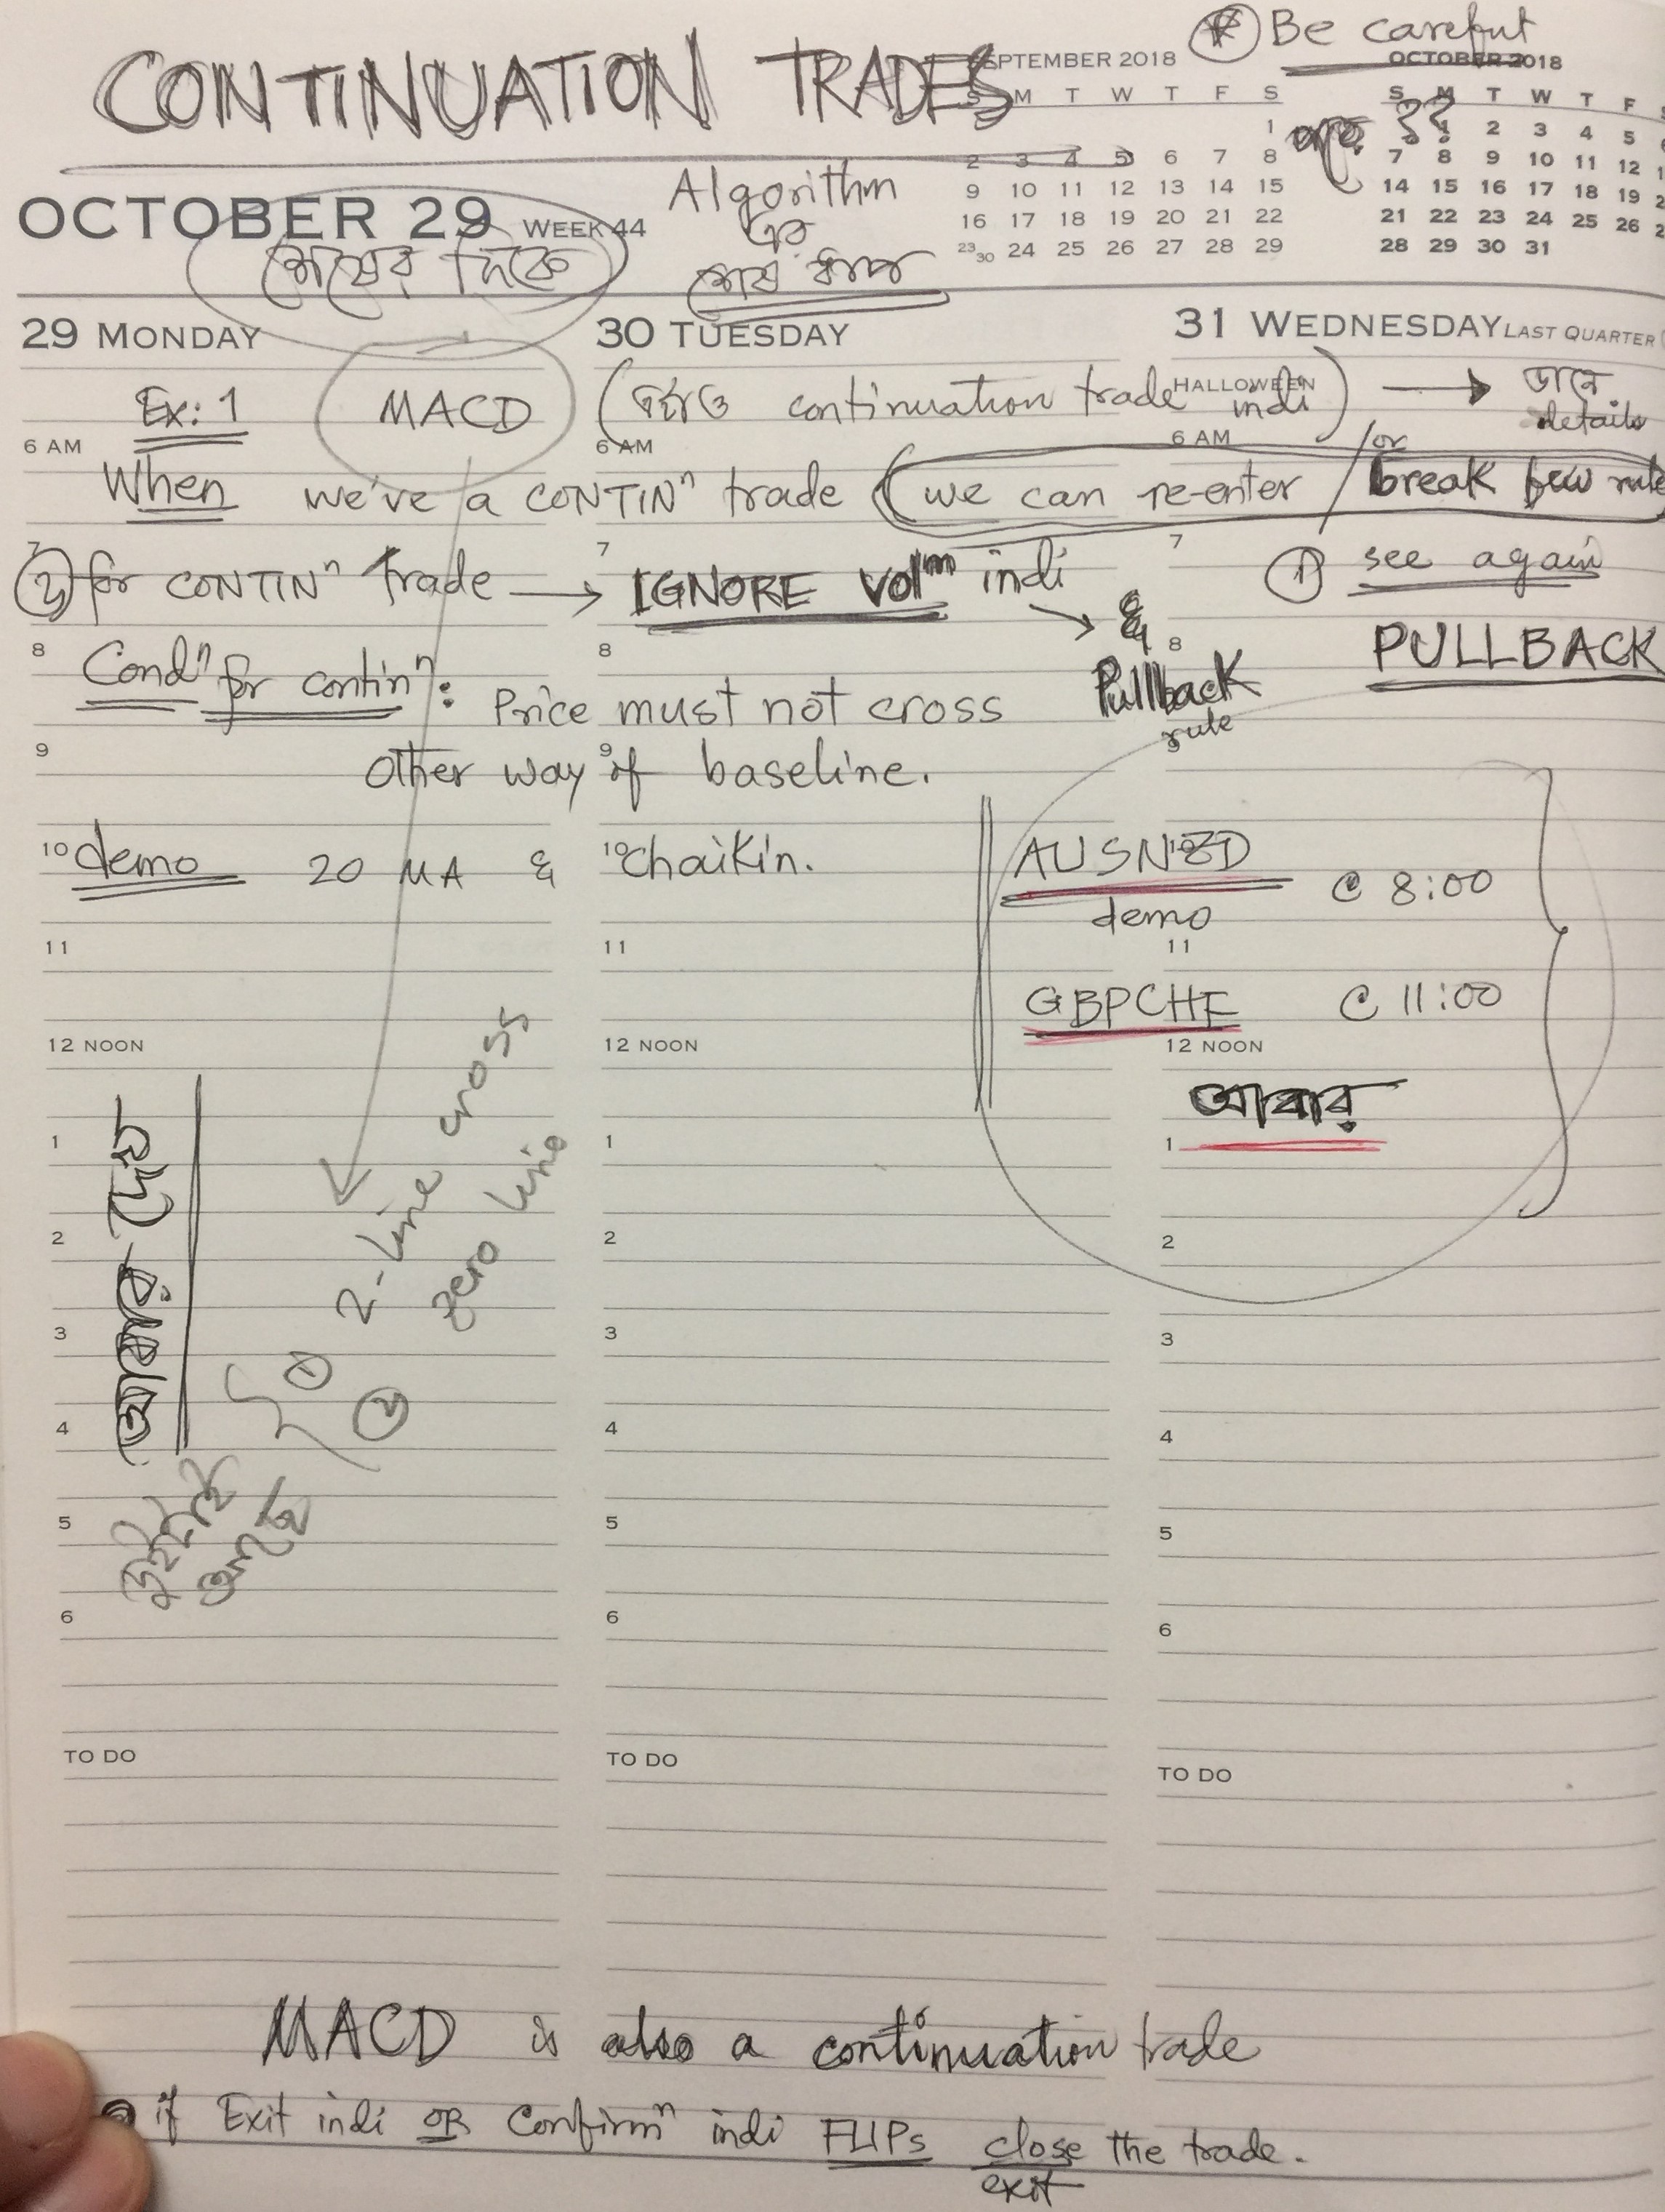 * Be careful
CONTINUATION TRADES
SEPTEMBER 2018
S M T W T F S
1
2 3 4 5 6 7 8
9 10 11 12 13 14 15
16 17 18 19 20 21 22
23 30 24 25 26 27 28 29
OCTOBER 2018
S M T W T F
1 2 3 4 5
7 8 9 10 11 12
14 15 16 17 18 19
21 22 23 24 25 26
28 29 30 31
??
OCTOBER 29 WEEK 44
শেষের দিকে
Algorithm
এর
শেষ
29 MONDAY
30 TUESDAY
31 WEDNESDAY LAST QUARTER
HALLOWEEN
Ex: 1 MACD ( continuation trade indi) → ডানে
details
6 AM 6 AM 6 AM
When we've a CONTINⁿ trade (we can re-enter / or break few rule
7 7 7
① see again
PULLBACK
② for CONTINⁿ Trade → IGNORE volᵐ indi
→ &
Pullback
rule
8 8 8
Condⁿ for continⁿ: Price must not cross
9 9
other way of baseline.
10 10 10
demo 20 MA & chaikin.
AUSNZD @ 8:00
demo
11 11 11
GBPCHF @ 11:00
12 NOON 12 NOON 12 NOON
আবার
1 1 1
আবার দেখ
① 2-line cross
② zero line
2 2 2
3 3 3
4 4 4
5 5 5
6 6 6
TO DO TO DO TO DO
MACD is also a continuation trade
if Exit indi OR Confirmⁿ indi FLIPs close the trade.
exit